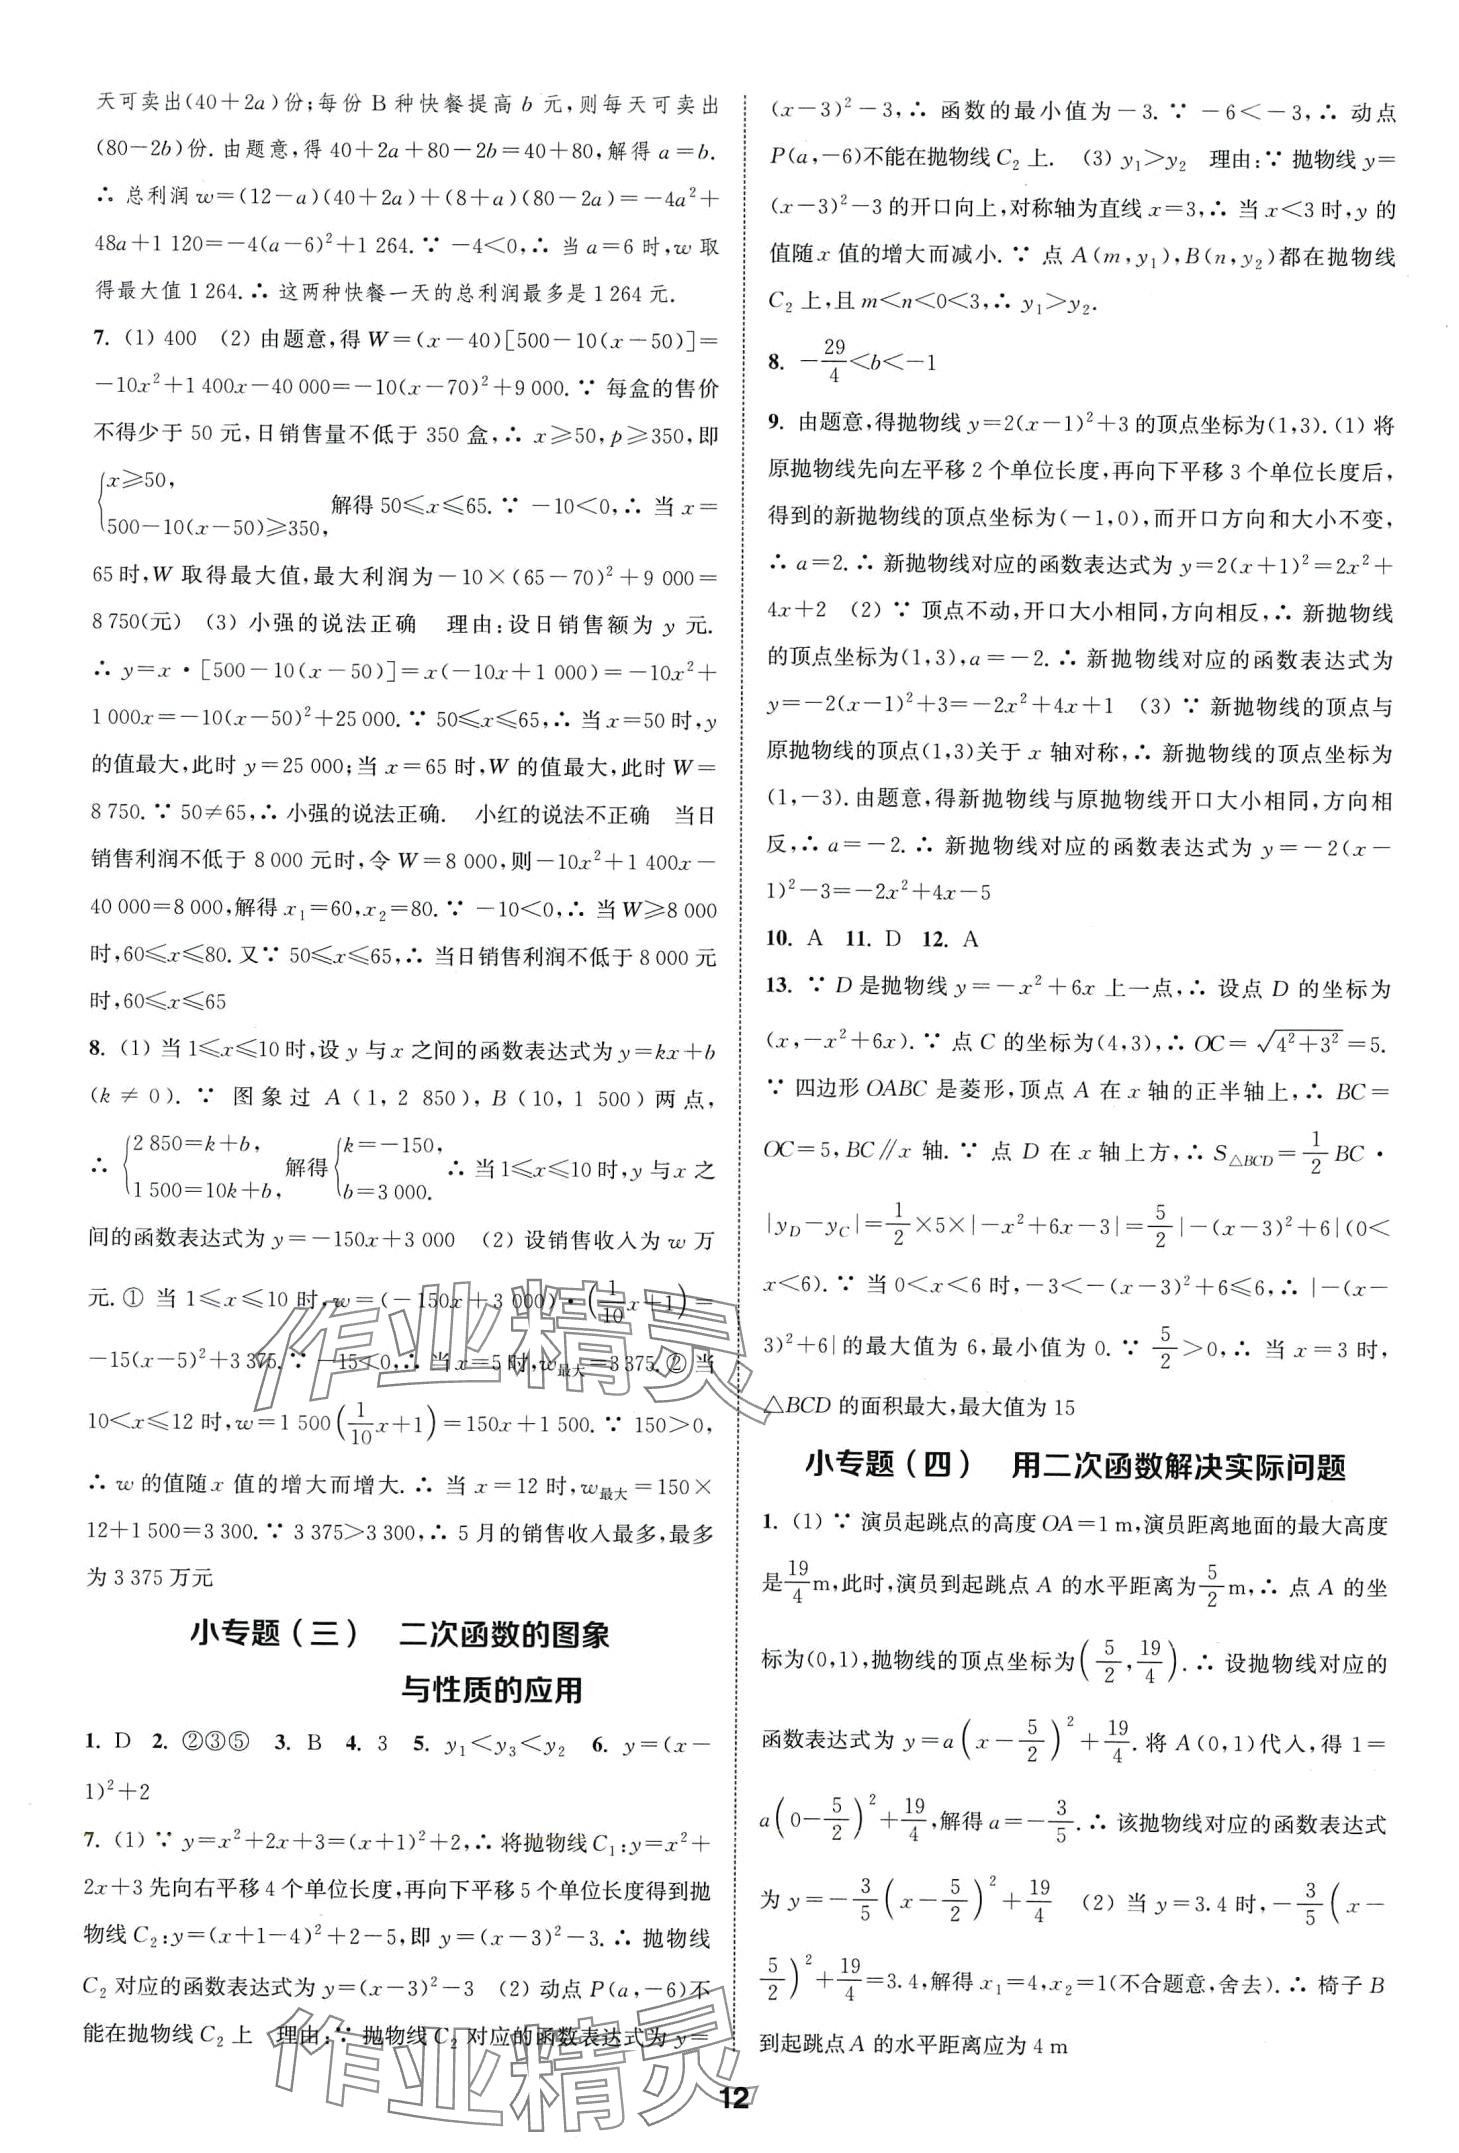 天可卖出(40+2a)份;每份 B 种快餐提高 b 元,则每天可卖出
(80-2b)份.由题意,得 40+2a+80-2b=40+80,解得 a=b.
∴ 总利润 w=(12-a)(40+2a)+(8+a)(80-2a)=-4a²+
48a+1 120=-4(a-6)²+1 264.∵ -4<0,∴ 当 a=6 时,w 取
得最大值 1 264.∴ 这两种快餐一天的总利润最多是 1 264 元.
7. (1) 400 (2) 由题意,得 W=(x-40)[500-10(x-50)]=
-10x²+1 400x-40 000=-10(x-70)²+9 000.∵ 每盒的售价
不得少于 50 元,日销售量不低于 350 盒,∴ x≥50,p≥350,即
{x≥50, 500-10(x-50)≥350, 解得 50≤x≤65.∵ -10<0,∴ 当 x=
65 时,W 取得最大值,最大利润为-10×(65-70)²+9 000=
8 750(元) (3) 小强的说法正确 理由:设日销售额为 y 元.
∴ y=x·[500-10(x-50)]=x(-10x+1 000)=-10x²+
1 000x=-10(x-50)²+25 000.∵ 50≤x≤65,∴ 当 x=50 时,y
的值最大,此时 y=25 000;当 x=65 时,W 的值最大,此时 W=
8 750.∵ 50≠65,∴ 小强的说法正确. 小红的说法不正确 当日
销售利润不低于 8 000 元时,令 W=8 000,则-10x²+1 400x-
40 000=8 000,解得 x₁=60,x₂=80.∵ -10<0,∴ 当 W≥8 000
时,60≤x≤80.又∵ 50≤x≤65,∴ 当日销售利润不低于 8 000 元
时,60≤x≤65
8. (1) 当 1≤x≤10 时,设 y 与 x 之间的函数表达式为 y=kx+b
(k≠0).∵ 图象过 A(1,2 850),B(10,1 500)两点,
∴ {2 850=k+b, 1 500=10k+b, 解得 {k=-150, b=3 000. ∴ 当 1≤x≤10 时,y 与 x 之
间的函数表达式为 y=-150x+3 000 (2) 设销售收入为 w 万
元.① 当 1≤x≤10 时,w=(-150x+3 000)·(1/10 x+1)=
-15(x-5)²+3 375.∵ -15<0,∴ 当 x=5 时,w最大=3 375.② 当
10<x≤12 时,w=1 500(1/10 x+1)=150x+1 500.∵ 150>0,
∴ w 的值随 x 值的增大而增大.∴ 当 x=12 时,w最大=150×
12+1 500=3 300.∵ 3 375>3 300,∴ 5 月的销售收入最多,最多
为 3 375 万元
小专题(三) 二次函数的图象
与性质的应用
1. D 2. ②③⑤ 3. B 4. 3 5. y₁<y₃<y₂ 6. y=(x-
1)²+2
7. (1) ∵ y=x²+2x+3=(x+1)²+2,∴ 将抛物线 C₁:y=x²+
2x+3 先向右平移 4 个单位长度,再向下平移 5 个单位长度得到抛
物线 C₂:y=(x+1-4)²+2-5,即 y=(x-3)²-3.∴ 抛物线
C₂ 对应的函数表达式为 y=(x-3)²-3 (2) 动点 P(a,-6)不
能在抛物线 C₂ 上 理由:∵ 抛物线 C₂ 对应的函数表达式为 y=
(x-3)²-3,∴ 函数的最小值为-3.∵ -6<-3,∴ 动点
P(a,-6)不能在抛物线 C₂ 上. (3) y₁>y₂ 理由:∵ 抛物线 y=
(x-3)²-3 的开口向上,对称轴为直线 x=3,∴ 当 x<3 时,y 的
值随 x 值的增大而减小.∵ 点 A(m,y₁),B(n,y₂)都在抛物线
C₂ 上,且 m<n<0<3,∴ y₁>y₂.
8. -29/4<b<-1
9. 由题意,得抛物线 y=2(x-1)²+3 的顶点坐标为(1,3).(1) 将
原抛物线先向左平移 2 个单位长度,再向下平移 3 个单位长度后,
得到的新抛物线的顶点坐标为(-1,0),而开口方向和大小不变,
∴ a=2.∴ 新抛物线对应的函数表达式为 y=2(x+1)²=2x²+
4x+2 (2) ∵ 顶点不动,开口大小相同,方向相反,∴ 新抛物线
的顶点坐标为(1,3),a=-2.∴ 新抛物线对应的函数表达式为
y=-2(x-1)²+3=-2x²+4x+1 (3) ∵ 新抛物线的顶点与
原抛物线的顶点(1,3)关于 x 轴对称,∴ 新抛物线的顶点坐标为
(1,-3).由题意,得新抛物线与原抛物线开口大小相同,方向相
反,∴ a=-2.∴ 新抛物线对应的函数表达式为 y=-2(x-
1)²-3=-2x²+4x-5
10. A 11. D 12. A
13. ∵ D 是抛物线 y=-x²+6x 上一点,∴ 设点 D 的坐标为
(x,-x²+6x).∵ 点 C 的坐标为(4,3),∴ OC=√(4²+3²)=5.
∵ 四边形 OABC 是菱形,顶点 A 在 x 轴的正半轴上,∴ BC=
OC=5,BC∥x 轴.∵ 点 D 在 x 轴上方,∴ S△BCD=1/2 BC·
|y_D-y_C|=1/2×5×|-x²+6x-3|=5/2|-(x-3)²+6|(0<
x<6).∵ 当 0<x<6 时,-3<-(x-3)²+6≤6,∴ |-(x-
3)²+6|的最大值为 6,最小值为 0.∵ 5/2>0,∴ 当 x=3 时,
△BCD 的面积最大,最大值为 15
小专题(四) 用二次函数解决实际问题
1. (1) ∵ 演员起跳点的高度 OA=1 m,演员距离地面的最大高度
是19/4 m,此时,演员到起跳点 A 的水平距离为5/2 m,∴ 点 A 的坐
标为(0,1),抛物线的顶点坐标为(5/2,19/4).∴ 设抛物线对应的
函数表达式为 y=a(x-5/2)²+19/4.将 A(0,1)代入,得 1=
a(0-5/2)²+19/4,解得 a=-3/5.∴ 该抛物线对应的函数表达式
为 y=-3/5(x-5/2)²+19/4 (2) 当 y=3.4 时,-3/5(x-
5/2)²+19/4=3.4,解得 x₁=4,x₂=1(不合题意,舍去).∴ 椅子 B
到起跳点 A 的水平距离应为 4 m
12
作业精灵
作业精灵